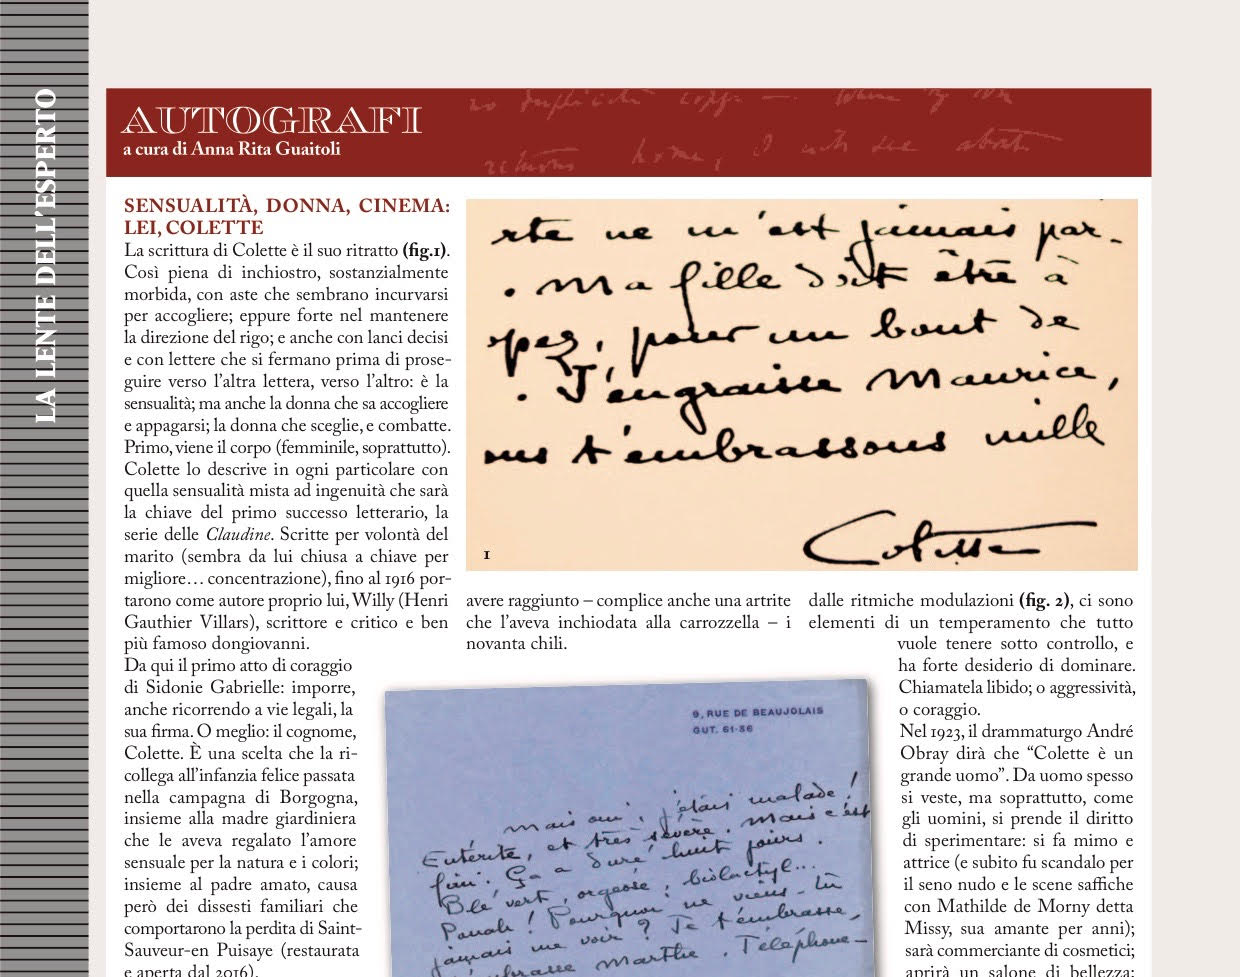 LA LENTE DELL'ESPERTO
AUTOGRAFI
a cura di Anna Rita Guaitoli
SENSUALITÀ, DONNA, CINEMA:
LEI, COLETTE
La scrittura di Colette è il suo ritratto (fig.1).
Così piena di inchiostro, sostanzialmente
morbida, con aste che sembrano incurvarsi
per accogliere; eppure forte nel mantenere
la direzione del rigo; e anche con lanci decisi
e con lettere che si fermano prima di prose-
guire verso l'altra lettera, verso l'altro: è la
sensualità; ma anche la donna che sa accogliere
e appagarsi; la donna che sceglie, e combatte.
Primo, viene il corpo (femminile, soprattutto).
Colette lo descrive in ogni particolare con
quella sensualità mista ad ingenuità che sarà
la chiave del primo successo letterario, la
serie delle Claudine. Scritte per volontà del
marito (sembra da lui chiusa a chiave per
migliore… concentrazione), fino al 1916 por-
tarono come autore proprio lui, Willy (Henri
Gauthier Villars), scrittore e critico e ben
più famoso dongiovanni.
Da qui il primo atto di coraggio
di Sidonie Gabrielle: imporre,
anche ricorrendo a vie legali, la
sua firma. O meglio: il cognome,
Colette. È una scelta che la ri-
collega all'infanzia felice passata
nella campagna di Borgogna,
insieme alla madre giardiniera
che le aveva regalato l'amore
sensuale per la natura e i colori;
insieme al padre amato, causa
però dei dissesti familiari che
comportarono la perdita di Saint-
Sauveur-en Puisaye (restaurata
e aperta dal 2016).
rte ne m'est jamais par-
. Ma fille doit être à
pez, pour un bout de
. J'engraisse Maurice,
ous t'embrassons mille
Colette
1
avere raggiunto – complice anche una artrite
che l'aveva inchiodata alla carrozzella – i
novanta chili.
9, RUE DE BEAUJOLAIS
GUT. 61-36
mais oui, j'étais malade !
Entérite, et très sévère. Mais c'est
fini. Ça a duré huit jours.
Blé vert, orgeose, biolactyl...
Pouah ! Pourquoi ne viens-tu
jamais me voir ? Je t'embrasse,
Marthe. Téléphone-
dalle ritmiche modulazioni (fig. 2), ci sono
elementi di un temperamento che tutto
vuole tenere sotto controllo, e
ha forte desiderio di dominare.
Chiamatela libido; o aggressività,
o coraggio.
Nel 1923, il drammaturgo André
Obray dirà che “Colette è un
grande uomo”. Da uomo spesso
si veste, ma soprattutto, come
gli uomini, si prende il diritto
di sperimentare: si fa mimo e
attrice (e subito fu scandalo per
il seno nudo e le scene saffiche
con Mathilde de Morny detta
Missy, sua amante per anni);
sarà commerciante di cosmetici;
aprirà un salone di bellezza;